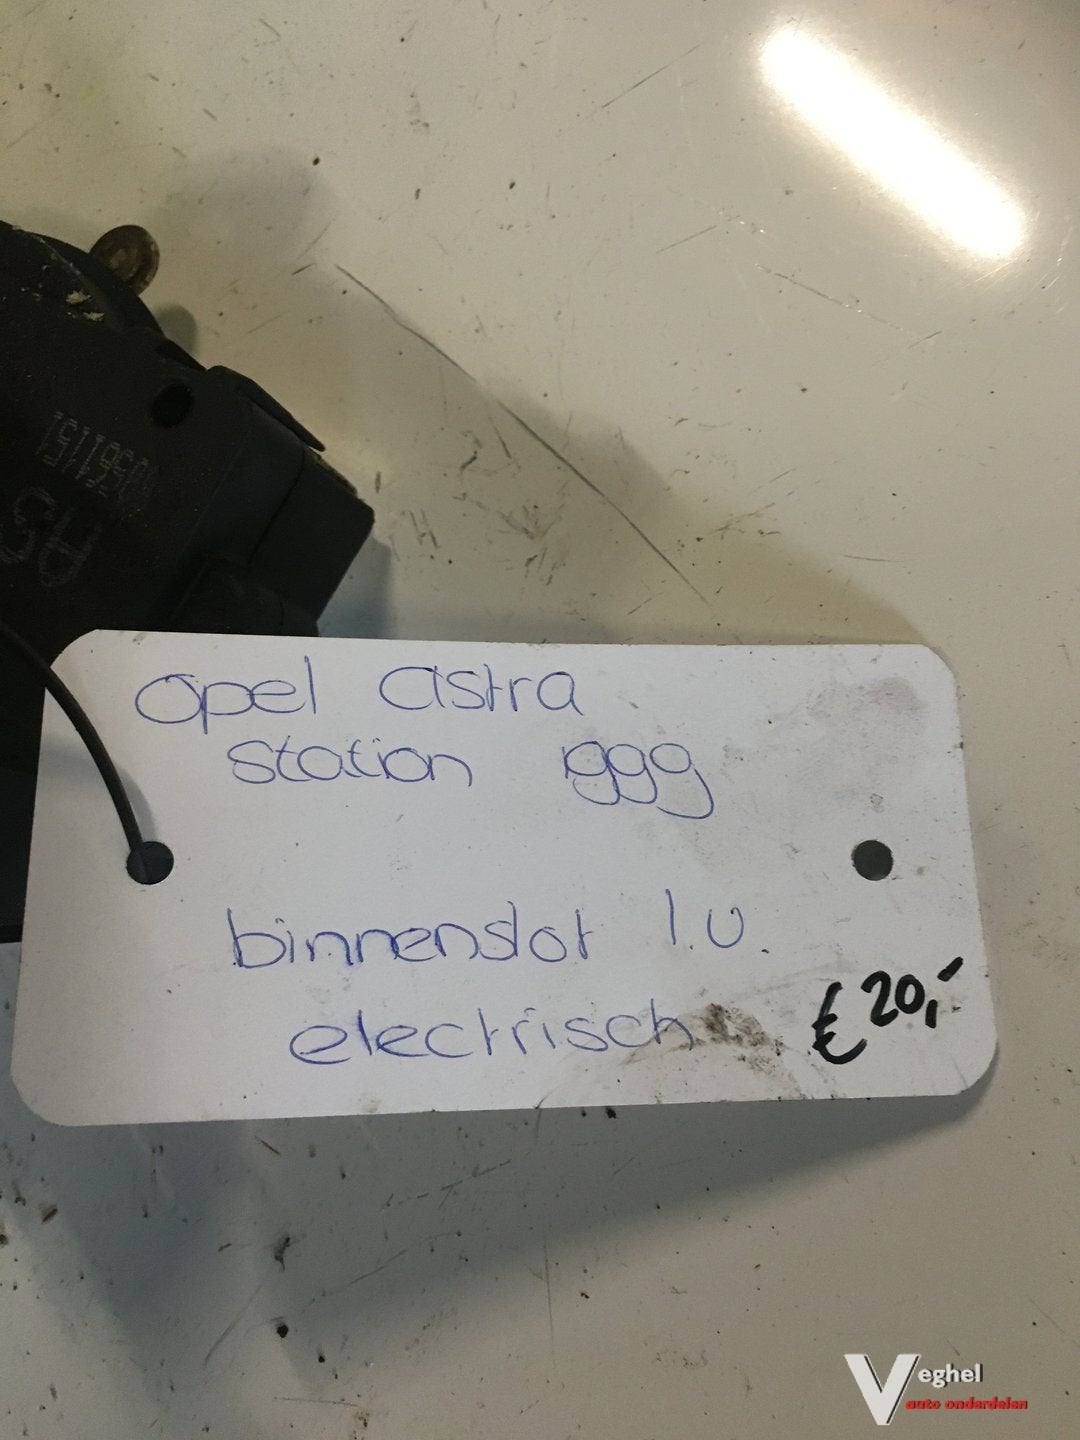 Opel Astra
station 1999
binnenslot l.v.
electrisch
€20,-
Veghel
auto onderdelen